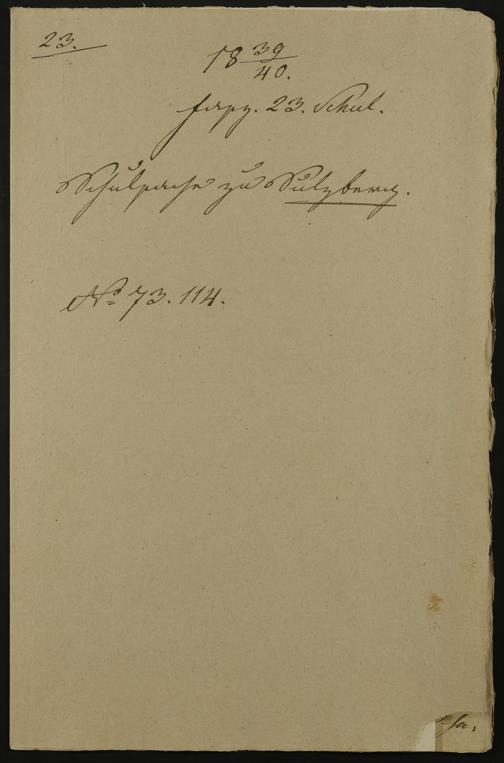 23.
18 39/40.
Fasz. 23. Schul.
Schulsache zu Sulzberg.
No 73. 114.